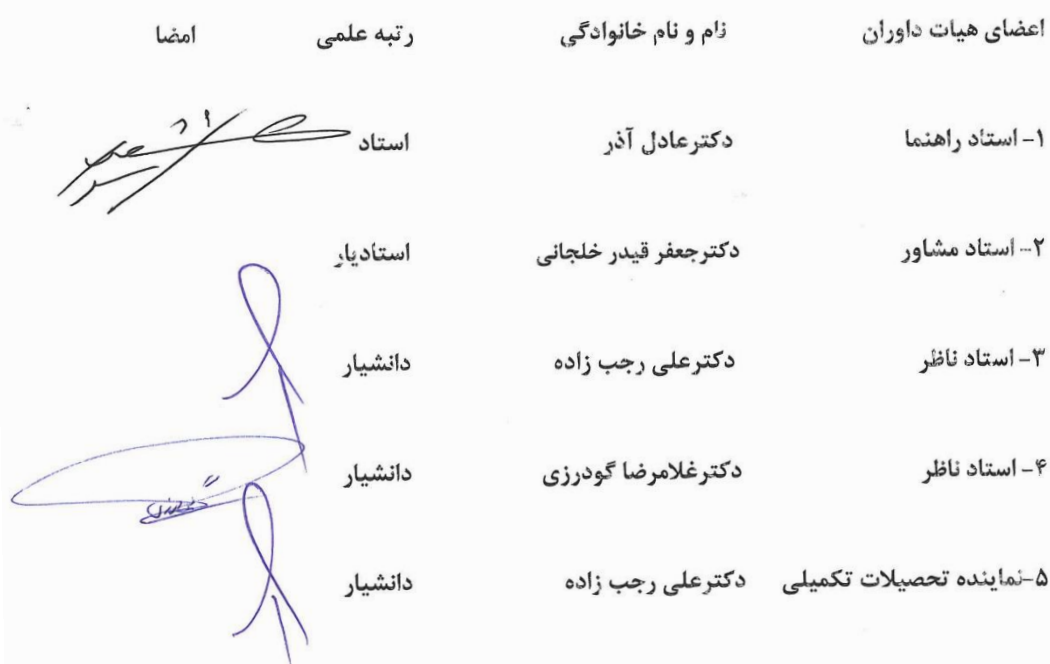 اعضای هیات داوران نام و نام خانوادگی رتبه علمی امضا
۱- استاد راهنما دکترعادل آذر استاد
۲- استاد مشاور دکترجعفر قیدر خلجانی استادیار
۳- استاد ناظر دکترعلی رجب زاده دانشیار
۴- استاد ناظر دکترغلامرضا گودرزی دانشیار
۵-نماینده تحصیلات تکمیلی دکترعلی رجب زاده دانشیار